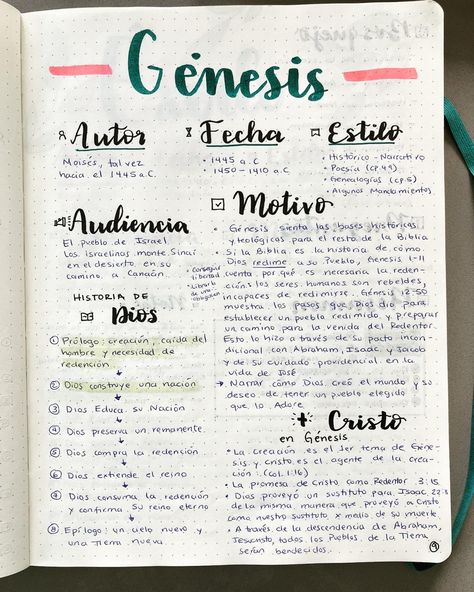 Génesis
Autor
Moisés, tal vez
hacia el 1445 a.C
Fecha
• 1445 a.C
• 1450-1410 a.C
Estilo
• Histórico - Narrativo
• Poesía (cp 49)
• Genealogías (cp. 5)
• Algunos Mandamientos
Audiencia
El pueblo de Israel
Los israelinas monte Sinaí
en el desierto, en su
camino a Canaán
Motivo
• Génesis sienta las bases históricas
y teológicas para el resto de la Biblia
• Si la Biblia es la historia de cómo
Dios redime a su Pueblo, Génesis 1-11
cuenta por qué es necesaria la reden-
ción: los seres humanos son rebeldes,
incapaces de redimirse. Génesis 12-50
muestra los pasos que Dios dio para
establecer un pueblo redimido y preparar
un camino para la venida del Redentor.
Esto lo hizo a través de su pacto incon-
dicional con Abraham, Isaac, y Jacob
y de su cuidado providencial en la
vida de José
→ Narrar cómo Dios creó el mundo y su
deseo de tener un pueblo elegido
que lo Adore
• Conseguir
libertad
• Librarlo
de una
obligación
HISTORIA DE
Dios
1 Prólogo: creación, caída del
hombre y necesidad de
redención
2 Dios construye una nación
3 Dios Educa su Nación
4 Dios preserva un remanente
5 Dios compra la redención
6 Dios extiende el reino
7 Dios consuma la redención
y confirma su reino eterno
8 Epílogo: un cielo nuevo y
una Tierra nueva
Cristo
en Génesis
• La creación es el 1er tema de Géne-
sis y cristo es el agente de la crea-
ción (Col. 1:16)
• La promesa de Cristo como Redentor 3:15
• Dios proveyó un sustituto para Isaac 22:8
de la misma manera que proveyó a Cristo
como nuestro sustituto x medio de su muerte.
• A través de la descendencia de Abraham,
Jesucristo, todos los Pueblos de la Tierra
serán bendecidos.